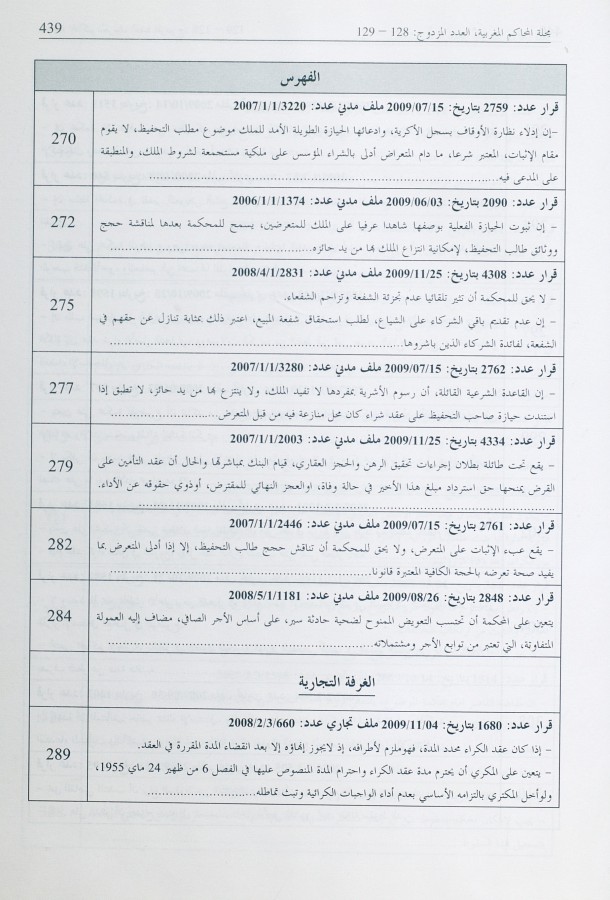 مجلة المحاكم المغربية، العدد المزدوج: 128 – 129
439
الفهرس
قرار عدد: 2759 بتاريخ: 2009/07/15 ملف مدني عدد: 2007/1/1/3220
–إن إدلاء نظارة الأوقاف بسجل الأكرية، وادعائها الحيازة الطويلة الأمد للملك موضوع مطلب التحفيظ، لا يقوم
مقام الإثبات، المعتبر شرعا، ما دام المتعراض أدلى بالشراء المؤسس على ملكية مستجمعة لشروط الملك، والمنطبقة
على المدعى فيه ........................................
270
قرار عدد: 2090 بتاريخ: 2009/06/03 ملف مدني عدد: 2006/1/1/1374
– إن ثبوت الحيازة الفعلية بوصفها شاهدا عرفيا على الملك للمتعرضين، يسمح للمحكمة بعدها لمناقشة حجج
ووثائق طالب التحفيظ، لإمكانية انتزاع الملك بها من يد حائزه........................................
272
قرار عدد: 4308 بتاريخ: 2009/11/25 ملف مدني عدد: 2008/4/1/2831
– لا يحق للمحكمة أن تثير تلقائيا عدم تجزئة الشفعة وتزاحم الشفعاء.
– إن عدم تقديم باقي الشركاء على الشياع، لطلب استحقاق شفعة المبيع، اعتبر ذلك بمثابة تنازل عن حقهم في
الشفعة، لفائدة الشركاء الذين باشروها........................................
275
قرار عدد: 2762 بتاريخ: 2009/07/15 ملف مدني عدد: 2007/1/1/3280
– إن القاعدة الشرعية القائلة، أن رسوم الأشرية بمفردها لا تفيد الملك، ولا ينتزع بها من يد حائز، لا تطبق إذا
استندت حيازة صاحب التحفيظ على عقد شراء كان محل منازعة فيه من قبل المتعرض........................................
277
قرار عدد: 4334 بتاريخ: 2009/11/25 ملف مدني عدد: 2007/1/1/2003
– يقع تحت طائلة بطلان إجراءات تحقيق الرهن والحجز العقاري، قيام البنك بمباشرتها والحال أن عقد التأمين على
القرض يمنحها حق استرداد مبلغ هذا الأخير في حالة وفاة، اوالعجز النهائي للمقترض، أوذوي حقوقه عن الأداء.
........................................
279
قرار عدد: 2761 بتاريخ: 2009/07/15 ملف مدني عدد: 2007/1/1/2446
– يقع عبء الإثبات على المتعرض، ولا يحق للمحكمة أن تناقش حجج طالب التحفيظ، إلا إذا أدلى المتعرض بما
يفيد صحة تعرضه بالحجة الكافية المعتبرة قانونا........................................
282
قرار عدد: 2848 بتاريخ: 2009/08/26 ملف مدني عدد: 2008/5/1/1181
يتعين على المحكمة أن تحتسب التعويض الممنوح لضحية حادثة سير، على أساس الأجر الصافي، مضاف إليه العمولة
المتفاوتة، التي تعتبر من توابع الأجر ومشتملاته........................................
284
الغرفة التجارية
قرار عدد: 1680 بتاريخ: 2009/11/04 ملف تجاري عدد: 2008/2/3/660
– إذا كان عقد الكراء محدد المدة، فهوملزم لأطرافه، إذ لايجوز إنهاؤه إلا بعد انقضاء المدة المقررة في العقد.
– يتعين على المكري أن يحترم مدة عقد الكراء واحترام المدة المنصوص عليها في الفصل 6 من ظهير 24 ماي 1955،
ولوأخل المكتري بالتزامه الأساسي بعدم أداء الواجبات الكرائية وتبث تماطله........................................
289